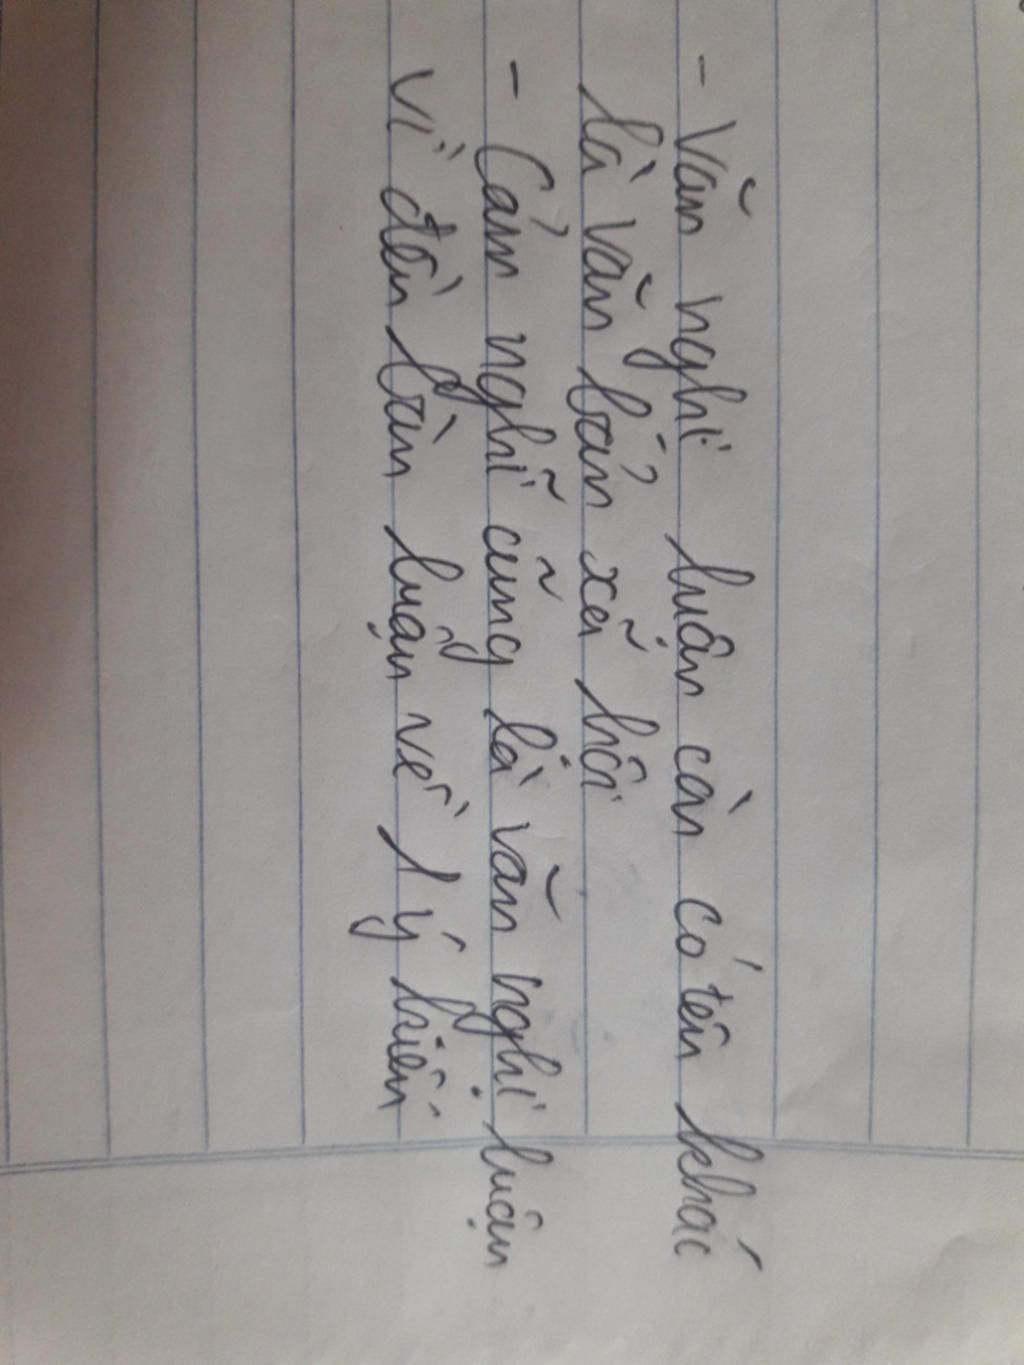 - Văn nghị luận còn có tên khác
là văn bản xã hội
- Cảm nghĩ cũng là văn nghị luận
vì đều bàn luận về 1 ý kiến